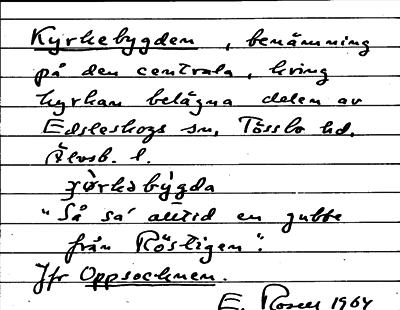 Kyrkebygden, benämning
på den centrala, kring
kyrkan belägna delen av
Edsleskogs sn, Tössbo hd.
Älvsb. l.
"Så sa' alltid en gubbe
från Röstigen".
Jfr Oppsocknen.
E. Rosell 1964